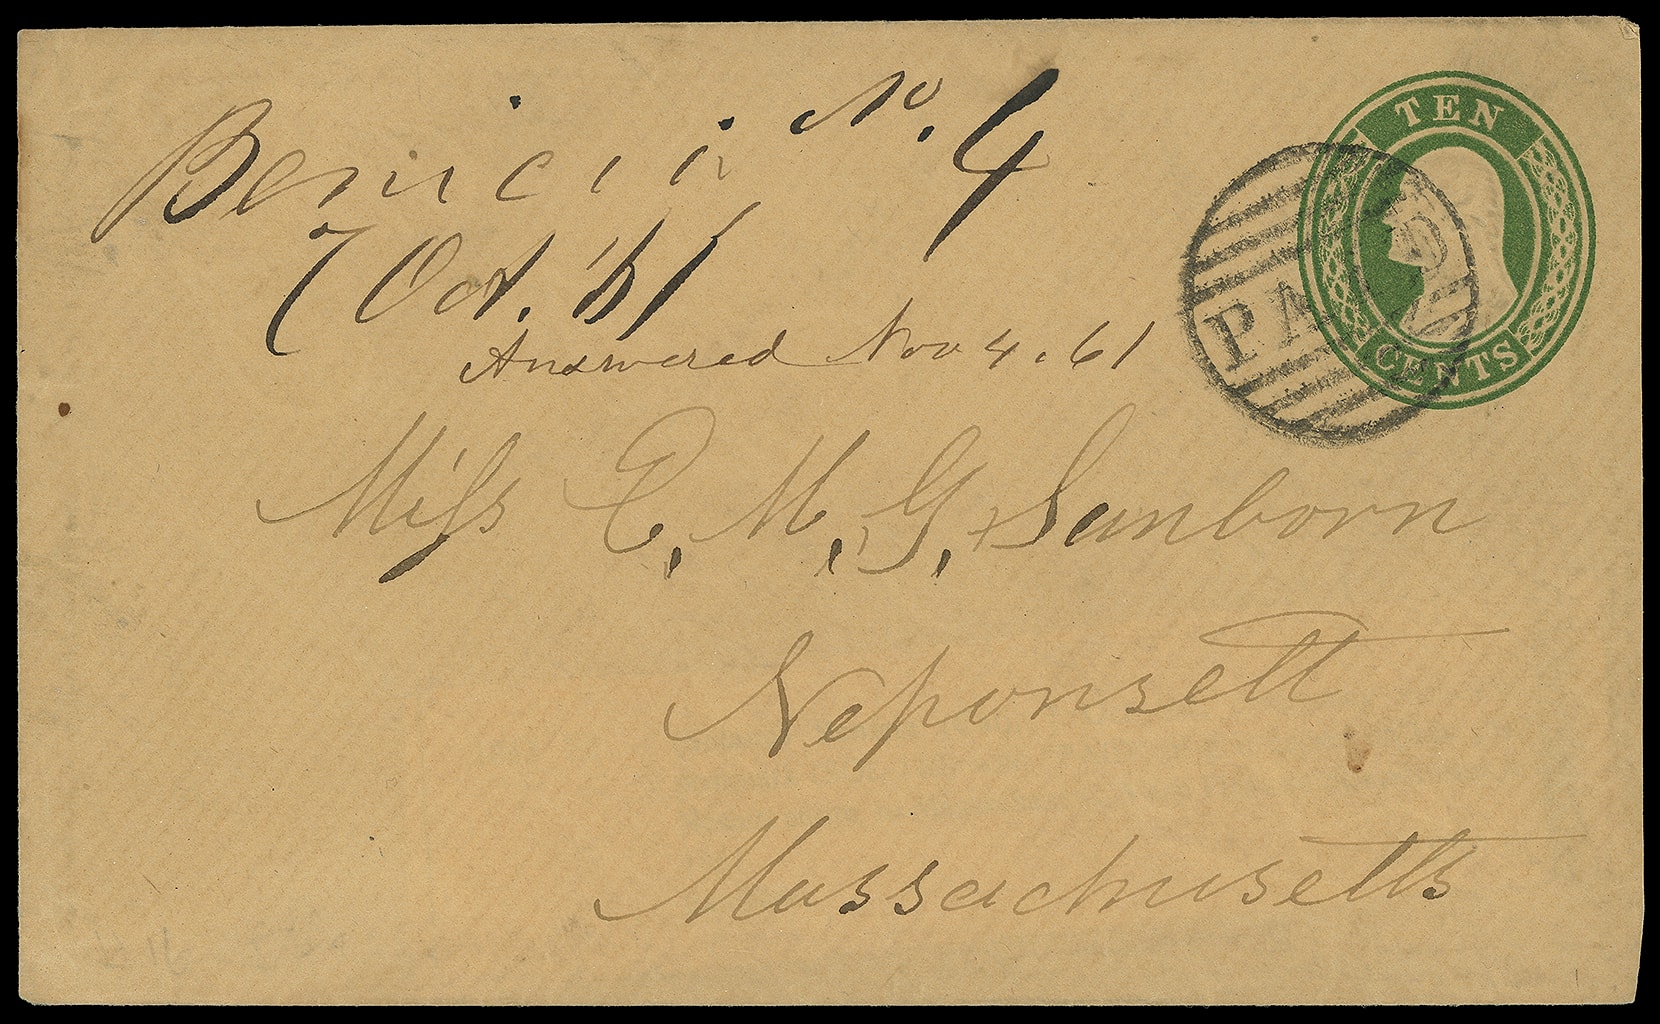 No. 4
Benicia
7 Oct. '61
Answered Nov 4. 61
TEN
CENTS
PAID
Miss E. M. G. Sanborn
Neponsett
Massachusetts